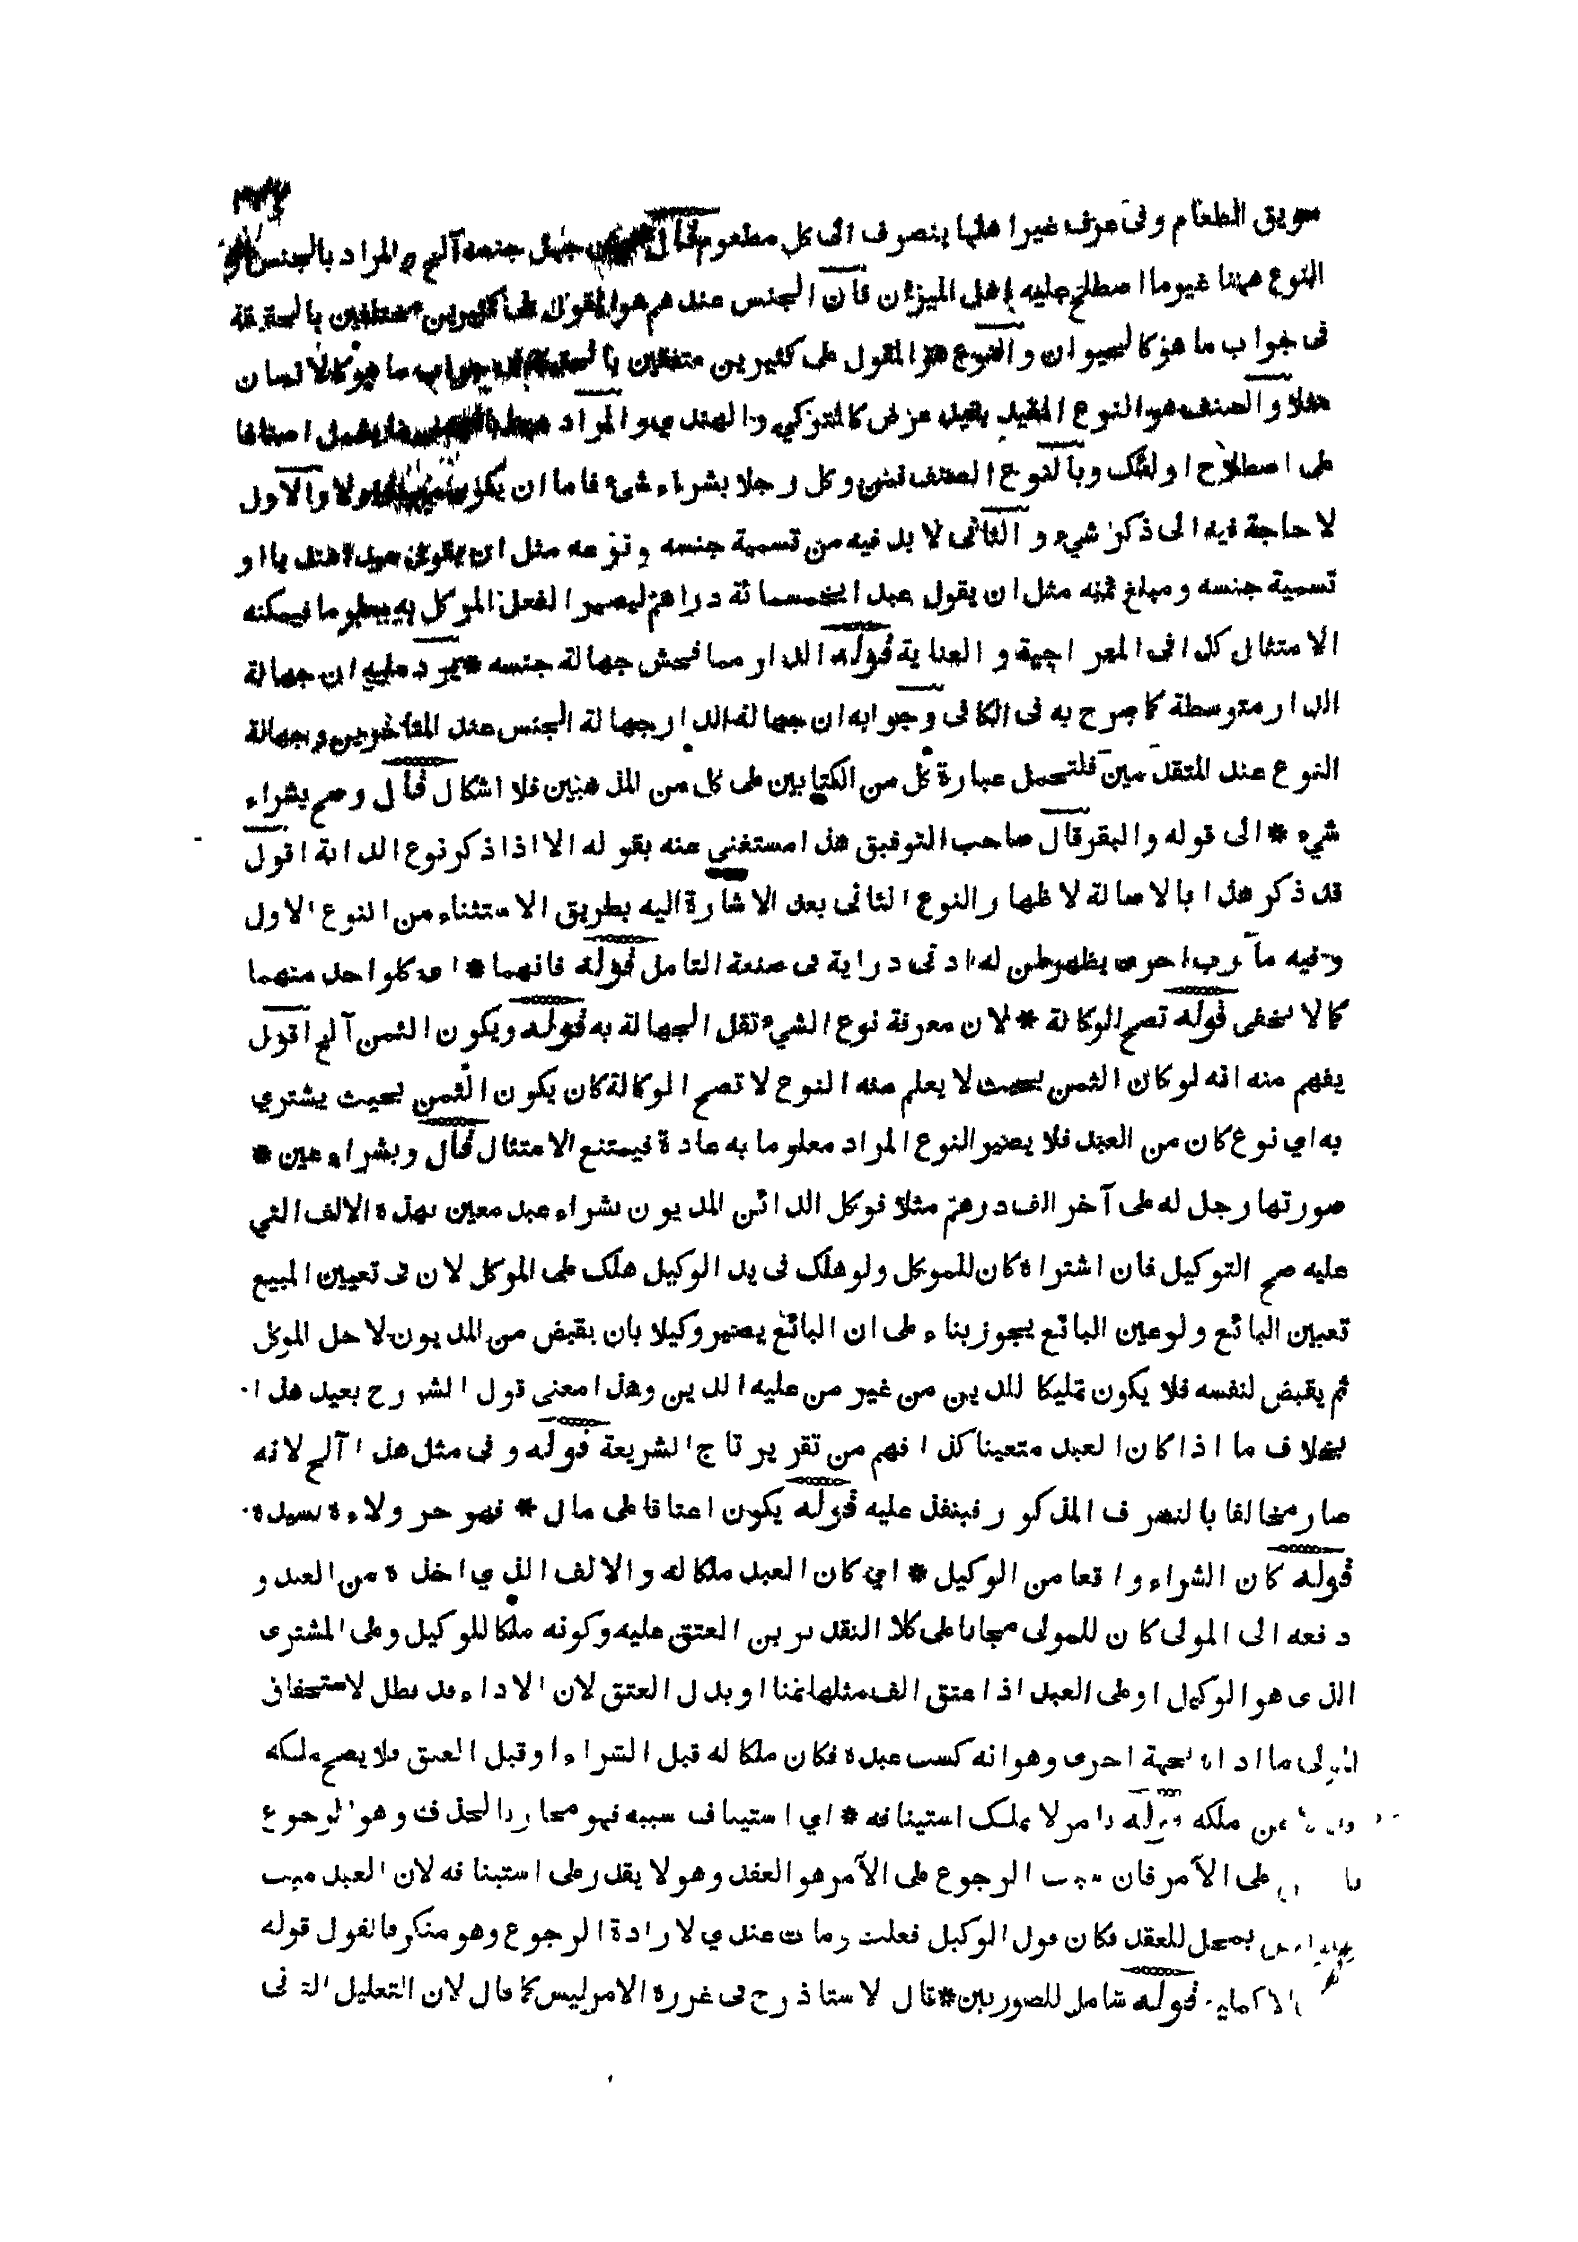 سويق الطعام وفي عرف غيرا هلها ينصرف الى كل مطعوم قال جهل جنسه آلخ و المراد بالجنس و
النوع ههنا غيرما اصطلح عليه اهل الميزان فان الجنس عندهم هو المقول على كثيرين مختلفين بالحقيقة
في جواب ما هو كالحيوان والنوع هو المقول على كثيرين متفقين بالحقيقة في جواب ما هو كالانسان
مثلا والصنف هو النوع المقيد بقيد عرض كالتركي والهندي والمراد ما يشمل اصنافا
على اصطلاح اولئك وبالنوع الصنف فمن وكل رجلا بشراء شيء فاما ان يكون اولا والاول
لا حاجة فيه الى ذكر شيء و الثاني لا بد فيه من تسمية جنسه و نوعه مثل ان يقول عبدا هنديا او
تسمية جنسه ومبلغ ثمنه مثل ان يقول عبدا بخمسمائة دراهم ليصير الفعل الموكل به معلوما فيمكنه
الامتثال كذا في المعراجية و العناية قوله الدار مما فحش جهالة جنسه * يرد عليه ان جهالة
الدار متوسطة كما صرح به في الكافي وجوابه ان جهالة الدار جهالة الجنس عند المتأخرين وجهالة
النوع عند المتقدمين فلتحمل عبارة كل من الكتابين على كل من المذهبين فلا اشكال قال وصح بشراء
شيء * الى قوله والبقر قال صاحب التوفيق هذا مستغنى عنه بقوله الا اذا ذكر نوع الدابة اقول
قد ذكر هذا بالاصالة لاظهار النوع الثاني بعد الاشارة اليه بطريق الاستثناء من النوع الاول
وفيه مآرب اخرى يظهر لمن له ادنى دراية في صنعة التامل قوله فانهما * اى كلواحد منهما
كما لا يخفى قوله تصح الوكالة * لان معرفة نوع الشيء تقل الجهالة به قوله ويكون الثمن آلخ اقول
يفهم منه انه لو كان الثمن بحيث لا يعلم منه النوع لا تصح الوكالة كان يكون الثمن بحيث يشتري
به اي نوع كان من العبد فلا يصير النوع المراد معلوما به عادة فيمتنع الامتثال قال وبشراء عين *
صورتها رجل له على آخر الف درهم مثلا فوكل الدائن المديون بشراء عبد معين بهذه الالف التي
عليه صح التوكيل فان اشتراه كان للموكل ولو هلك في يد الوكيل هلك على الموكل لان في تعيين المبيع
تعيين البائع ولوعين البائع يجوز بناء على ان البائع يصير وكيلا بان يقبض من المديون لاجل الموكل
ثم يقبض لنفسه فلا يكون تمليكا للدين من غير من عليه الدين وهذا معنى قول الشارح بعيد هذا
بخلاف ما اذا كان العبد متعينا كذا افهم من تقرير تاج الشريعة قوله و في مثل هذا آلخ لانه
صار مخالفا بالتصرف المذكور فينفذ عليه قوله يكون اعتاقا على مال * فهو حر ولاءه لسيده
قوله كان الشراء واقعا من الوكيل * اي كان العبد ملكا له والالف الذي اخذه من العبد و
دفعه الى المولى كان للمولى مجانا على كلا التقديرين العتق عليه وكونه ملكا للوكيل وعلى المشترى
الذى هو الوكيل او على العبد اذا عتق الف مثلها ثمنا او بدل العتق لان الاداء قد بطل لاستحقاق
المولى ما اداه لجهة اخرى وهو انه كسب عبده فكان ملكا له قبل الشراء او قبل العتق فلا يصح ملكه
عن ملكه قوله دامر لا يملك استينافه * اي استيناف سببه فهو مجاز الحذف وهو الرجوع
على الآمر فان الرجوع على الآمر هو العقد وهو لا يقدر على استينافه لان العبد ميت
بمحل للعقد فكان قول الوكيل فعلت ومات عندي لارادة الرجوع وهو منكر فالقول قوله
قوله شامل للصورتين * قال الاستاذ رح في غرره الامر ليس كما قال لان التعليل في